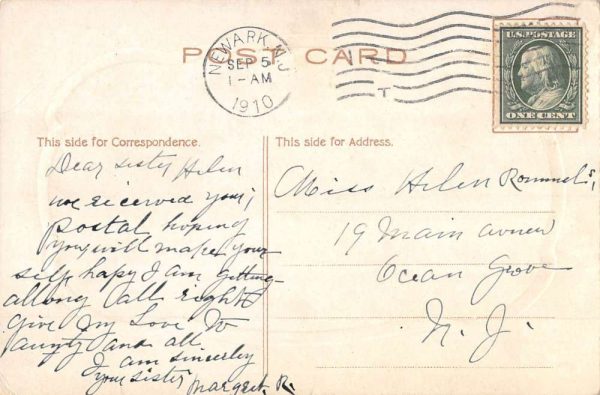 POST CARD
NEWARK, N.J.
SEP 5
1-AM
1910
T
U.S. POSTAGE
ONE CENT
This side for Correspondence.
Dear sister Helen
we received your
postal hoping
you will make your
self hapy I am getting
allong all right
give my Love to
and all
I am sincerley
your sister
Margret. R.
This side for Address.
Miss Helen
19 Main
Ocean Grove
N. J.